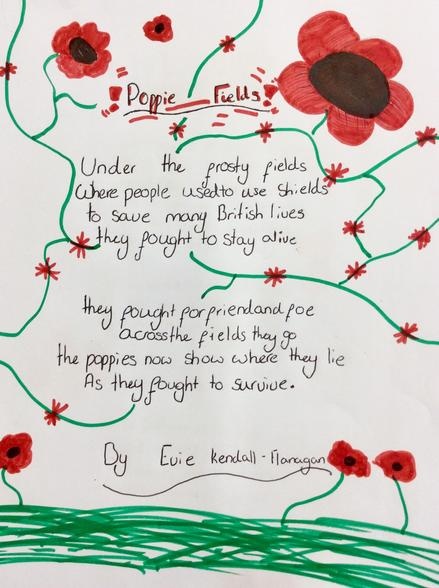 Poppie Fields
Under the frosty fields
Where people used to use shields
to save many British lives
they fought to stay alive
they fought for friend and foe
across the fields they go
the poppies now show where they lie
As they fought to survive.
By Evie Kendall-Flanagan